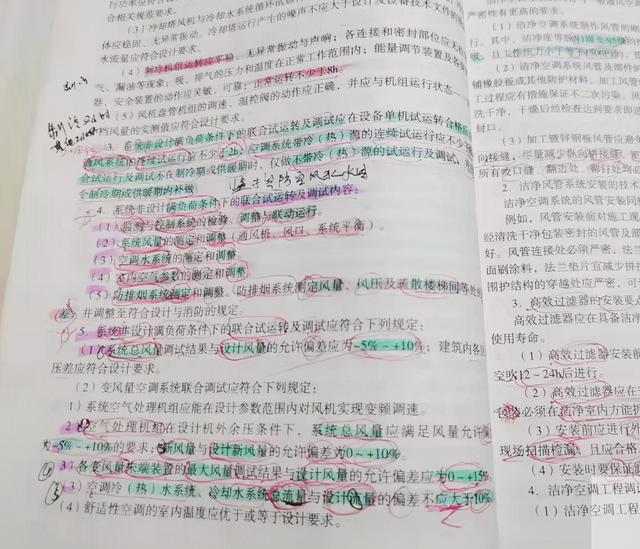 合相关规范要求。
(3)冷却塔风机与冷却水系统循环试运行
体应稳固、无异常振动。冷却塔运行产生的噪声不应大于设计及设备技术文件的
水流量应符合设计要求。
(4)制冷机组运转应平稳、无异常振动与声响；各连接和密封部位应无松
气、漏油等现象；吸、排气的压力和温度在正常工作范围内；能量调节装置及各保
器、安全装置的动作应灵敏、可靠；正常运转不少于8h。
(5)风机盘管机组的调速、温控阀的动作应正确，并应与机组运行状态
档风量的实测值应符合设计要求。
3. 系统非设计满负荷条件下的联合试运转及调试应在设备单机试运转合格后
通风系统的连续试运行应不少于2h，空调系统带冷(热)源的连续试运行应不少于
合试运行及调试不在制冷期或供暖期时，仅做不带冷(热)源的试运行及调试，
个制冷期或供暖期内补做
4. 系统非设计满负荷条件下的联合试运转及调试内容：
(1)监测与控制系统的检验、调整与联动运行。
(2)系统风量的测定和调整(通风机、风口、系统平衡)。
(3)空调水系统的测定和调整。
(4)室内空气参数的测定和调整。
(5)防排烟系统测定和调整。防排烟系统测定风量、风压及疏散楼梯间等处的
差，并调整至符合设计与消防的规定。
5. 系统非设计满负荷条件下的联合试运转及调试应符合下列规定：
(1)系统总风量调试结果与设计风量的允许偏差应为-5%~+10%；建筑内各
压差应符合设计要求。
(2)变风量空调系统联合调试应符合下列规定：
1)系统空气处理机组应能在设计参数范围内对风机实现变频调速。
2)空气处理机组在设计机外余压条件下，系统总风量应满足风量允许
为-5%~+10%的要求；新风量与设计新风量的允许偏差为0~+10%。
3)各变风量末端装置的最大风量调试结果与设计风量的允许偏差应为0~+15%
(3)空调冷(热)水系统、冷却水系统总流量与设计流量的偏差不应大于10%
(4)舒适性空调的室内温度应优于或等于设计要求。
严密性有更高的要求。
(1)洁净空调系统制作风管的刚
行。其中，洁净度等级N1级至N5级
且工作压力小于等于
铺橡胶板或其他防护材料。加工风管
工过程应有措施保证不二次污染。风
洗干净，干燥后经检查达到要求即
封口。
(3)加工镀锌钢板风管应避免
向接缝，尽量减少纵向拼接缝
所有咬口缝、翻边处、铆钉处均必
2. 洁净风管系统安装的技术
洁净空调系统的风管安装同
例如，风管安装前对施工现
经清洗干净包装密封的风管及部
好。风管连接处必须严密，法兰
面刷涂料，法兰垫片宜减少拼
围护结构的穿越处应严密，可
3. 高效过滤器的安装要
高效过滤器应在具备洁净
使用寿命。
(1)高效过滤器安装前
空吹12~24h后进行。
(2)高效过滤器应在
包装必须在洁净室内方能拆
(3)安装前应进行外
现场扫描检漏，且应合格
(4)安装时要保证滤
4. 洁净空调工程调
(1)洁净空调工程